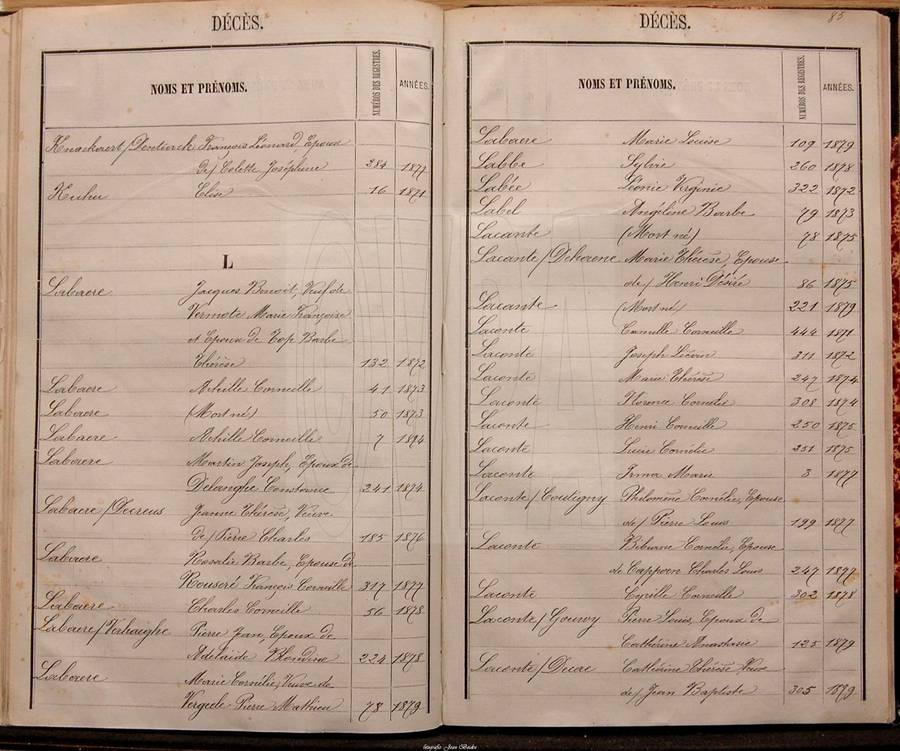 DÉCÈS.
NOMS ET PRÉNOMS. NUMÉROS DES REGISTRES. ANNÉES.
François Léonard, Epoux
de/ Colette Joséphine 284 1877
Kuhn Elise 16 1871
L
Labaere Jacques Benoit, Veuf de
Vermote Marie Françoise
et Epoux de Top Barbe
Thérèse 132 1872
Labaere Achille Corneille 41 1873
Labaere (Mort né) 50 1873
Labaere Achille Corneille 7 1874
Labaere Martin Joseph, Epoux de
Delanghe Constance 241 1874
Labaere / Jeanne Thérèse, Veuve
de/ Pierre Charles 185 1876
Labaere Rosalie Barbe, Epouse de
Rouseré François Corneille 317 1877
Labaere Charles Corneille 56 1878
Labaere/ Verhaighe Pierre Jean, Epoux de
Adelaide Blondine 224 1878
Labaere Marie Cornélie, Veuve de
Pierre Mathieu 78 1879
DÉCÈS. 85
NOMS ET PRÉNOMS. NUMÉROS DES REGISTRES. ANNÉES.
Labaere Marie Louise 109 1879
Labbe Sylvie 260 1878
Labée Léonie Virginie 322 1872
Label Angéline Barbe 79 1873
Lacante (Mort né) 78 1875
Lacante / Dehaene Marie Thérèse, Epouse
de/ Henri Désiré 86 1875
Lacante (Mort né) 221 1879
Laconte Camille Corneille 444 1871
Laconte Joseph 311 1872
Laconte Marie Thérèse 247 1874
Laconte Florence Cornélie 308 1874
Laconte Henri Corneille 250 1875
Laconte Lucie Cornélie 251 1875
Laconte Irma Marie 3 1877
Laconte / Coutigny Philomène Cornélie, Epouse
de/ Pierre Louis 199 1877
Laconte Bibiane Cornélie, Epouse
de Cappoen Charles Louis 247 1877
Laconte Cyrille Corneille 302 1878
Laconte / Gouwy Pierre Louis, Epoux de
Cathérine Anastasie 125 1879
Laconte / Decae Cathérine Thérèse Veuve
de/ Jean Baptiste 305 1879
fotografie Jean Beske